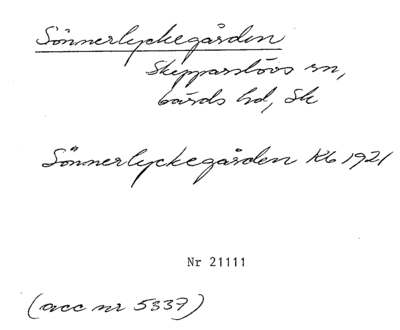 Sönnerlyckegården
Skepparslövs sn,
Gärds hd, Sk
Sönnerlyckegården Kb 1921
Nr 21111
(acc nr 5337)